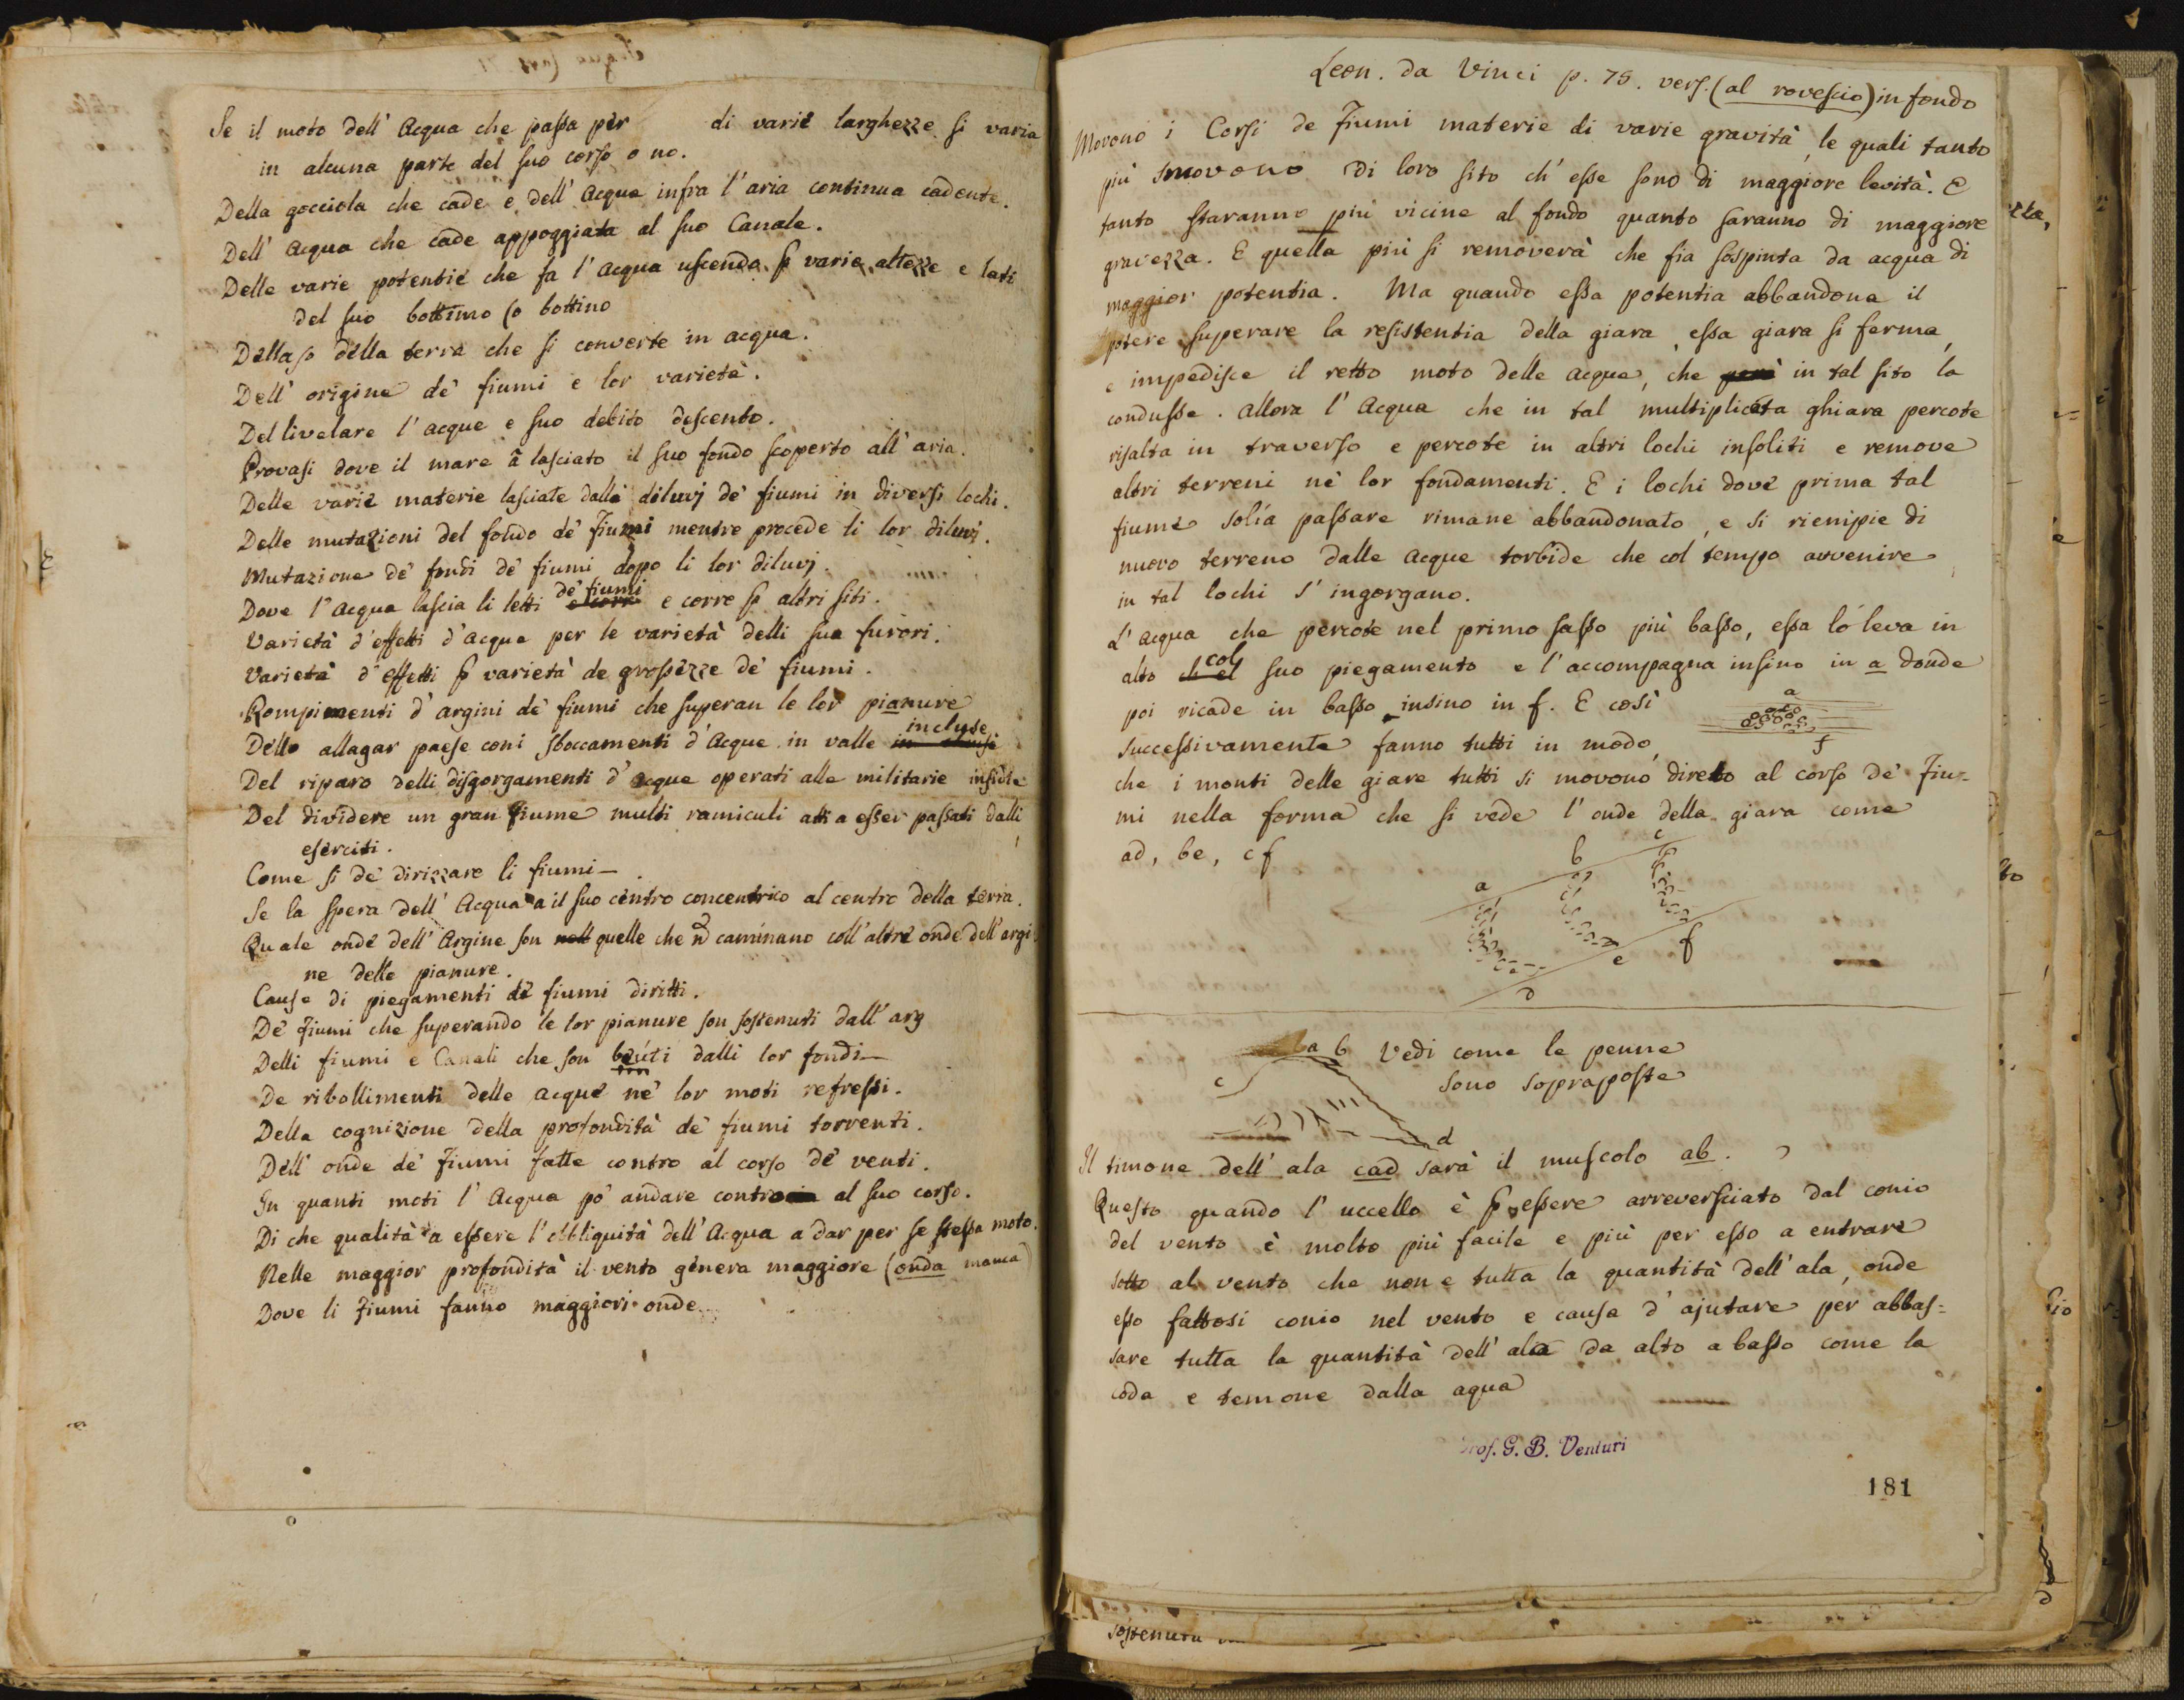 Se il moto dell' Acqua che passa per di varie larghezze si varia
in alcuna parte del suo corso o no.
Della gocciola che cade e dell' acqua infra l'aria continua cadente.
Dell' acqua che cade appoggiata al suo Canale.
Delle varie potentie che fa l'acqua uscendo p varie altezze e lati
del suo bottimo (o bottino
Della della terra che si converte in acqua.
Dell' origine de' fiumi e lor varietà.
Del livelare l'acque e suo debito descento.
Provasi dove il mare à lasciato il suo fondo scoperto all' aria.
Delle varie materie lasciate dalli diluvj de' fiumi in diversi lochi.
Delle mutazioni del fondo de' fiumi mentre procede li lor diluvj.
Mutazione de' fondi de' fiumi dopo li lor diluvj.
de' fiumi
Dove l'acqua lascia li letti e corre e corre p altri siti.
Varietà d'effetti d'acque per le varietà delli sua furori.
Varietà d'effetti p varietà de grossezze de' fiumi.
Rompimenti d'argini de' fiumi che superan le lor pianure
incluse
Dello allagar paese coni sboccamenti d'Acque in valle
Del riparo delli disgorgamenti d'acque operati alle militarie insidie
Del dividere un gran fiume multi ramiculi atti a esser passati dalli
eserciti.
Come si de' dirizzare li fiumi —
Se la spera dell' Acqua a il suo centro concentrico al centro della terra.
Quale onde dell' Argine son nell quelle che caminano coll'altre onde dell' argi
ne delle pianure.
Cause di piegamenti de' fiumi diritti.
De' fiumi che superando le lor pianure son sostenuti dall' arg
Delli fiumi e Canali che son dalli lor fondi —
De ribollimenti delle acque ne' lor moti refressi.
Della cognizione della profondità de' fiumi torrenti.
Dell' onde de' fiumi fatte contro al corso de' venti.
In quanti moti l'Acqua po' andare contro al suo corso.
Di che qualità a essere l'obliquità dell' Acqua a dar per se stessa moto.
Nelle maggior profondità il vento genera maggiore (onda manca)
Dove li fiumi fanno maggiori onde
Leon. da Vinci p. 75. vers. (al rovescio) in fondo
Movono i Corsi de fiumi materie di varie gravità, le quali tanto
più smovono di loro sito ch' esse sono di maggiore levità. E
tanto staranno più vicine al fondo quanto saranno di maggiore
gravezza. E quella più si removerà che fia sospinta da acqua di
maggior potentia. Ma quando essa potentia abbandona il
potere superare la resistentia della giara, essa giara si ferma,
e impedisce il retto moto delle acque, che però in tal sito la
condusse. Allora l'Acqua che in tal multiplicata ghiara percote
risalta in traverso e percote in altri lochi insoliti e remove
altri terreni ne' lor fondamenti. E i lochi dove prima tal
fiume solía passare rimane abbandonato, e si riempie di
nuovo terreno dalle acque torbide che col tempo avvenire
in tal lochi s'ingorgano.
L'acqua che percote nel primo sasso più basso, essa lo leva in
col
alto ch el suo piegamento e l'accompagna insino in a donde
poi ricade in basso insino in f. E così
a
f
successivamente fanno tutti in modo,
che i monti delle giare tutti si movono diretto al corso de' Fiu=
mi nella forma che si vede l'onde della giara come
ad, be, cf
a b c
d e f
a b
c
d
Vedi come le penne
sono sopraposte
Il timone dell' ala cad sarà il muscolo ab.
Questo quando l'uccello è p essere arreversciato dal conio
del vento è molto più facile e più per esso a entrare
sotto al vento che non e tutta la quantità dell' ala, onde
esso fattosi conio nel vento e causa d'ajutare per abbas=
sare tutta la quantità dell' ala da alto a basso come la
coda e temone dalla aqua
Prof. G. B. Venturi
181